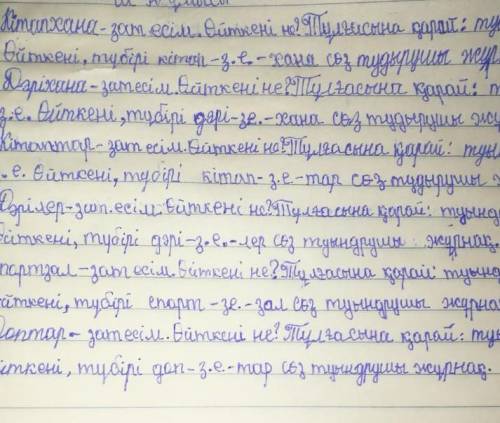 Кітапхана-зат есім. Өйткені не? Тұлғасына қарай: ту
Өйткені, түбірі кітап-з.е.-хана сөз тудырушы жұр
Дәріхана-зат есім. Өйткені не? Тұлғасына қарай: т
з.е. Өйткені, түбірі дәрі-зе.-хана сөз тудырушы жұ
Кітаптар-зат есім. Өйткені не? Тұлғасына қарай: туын
.е. Өйткені, түбірі кітап-з.е-тар сөз тудырушы ж
Дәрілер-зат.есім. Өйткені не? Тұлғасына қарай: туынд
өйткені, түбірі дәрі-з.е.-лер сөз туындрушы жұрнақ.
партзал-зат есім. Өйткені не? Тұлғасына қарай: туынд
өйткені, түбірі спорт-зе.-зал сөз туындрушы жұрна
Доптар-зат есім. Өйткені не? Тұлғасына қарай: туы
йткені, түбірі доп-з.е.-тар сөз туындрушы жұрнақ.